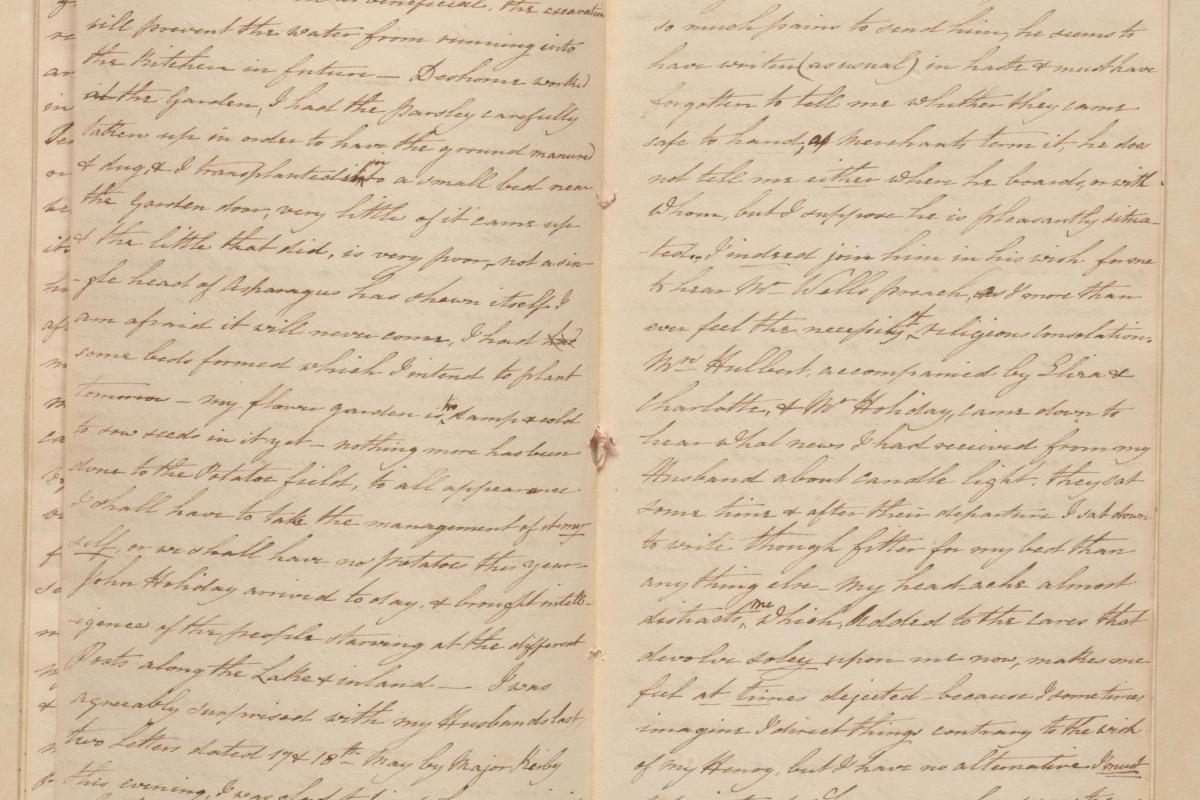 beneficial, the excavation
will prevent the water from running into
the Kitchen in future — Deshome worked
the Garden, I had the parsley carefully
taken up in order to have the ground manured
& dug, & I transplanted into a small bed near
the Garden door, very little of it came up
& the little that did, is very poor, not a sin-
gle head of Asparagus has shewn itself. I
am afraid it will never come, I had had
some beds formed which I intend to plant
tomorrow — my flower garden is too damp & cold
to sow seeds in it yet — nothing more has been
done to the Potatoe field, to all appearance
I shall have to take the management of it my
self, or we shall have no potatoes this year —
John Holiday arrived to day, & brought intelli-
-igence of the people starving at the different
Posts along the Lake & inland — I was
agreeably surprised with my Husbands last
two letters dated 17 & 18th May by Major Kirby
this evening, I was
so much pains to send him, he seems to
have writen (as usual) in haste & must have
forgotten to tell me whether they came
safe to hand, as Merchants term it, he does
not tell me either where he boards, or with
Whom, but I suppose he is pleasantly situa-
-ted. I indeed join him in his wish for me
to hear Mr Wells preach, as I more than
ever feel the necessity of religious Consolation.
Mrs Hulbert, accompanied by Eliza &
Charlotte, & Mr Holiday, came down to
hear what news I had received from my
Husband about candle light. they sat
some time & after their departure I sat down
to write though fitter for my bed than
any thing else — My head-ache almost
distracts me, Which, Added to the Cares that
devolve soley upon me now, makes me
feel at times dejected — because I sometimes
imagine I direct things contrary to the wish
of my Henry, but I have no alternative I must